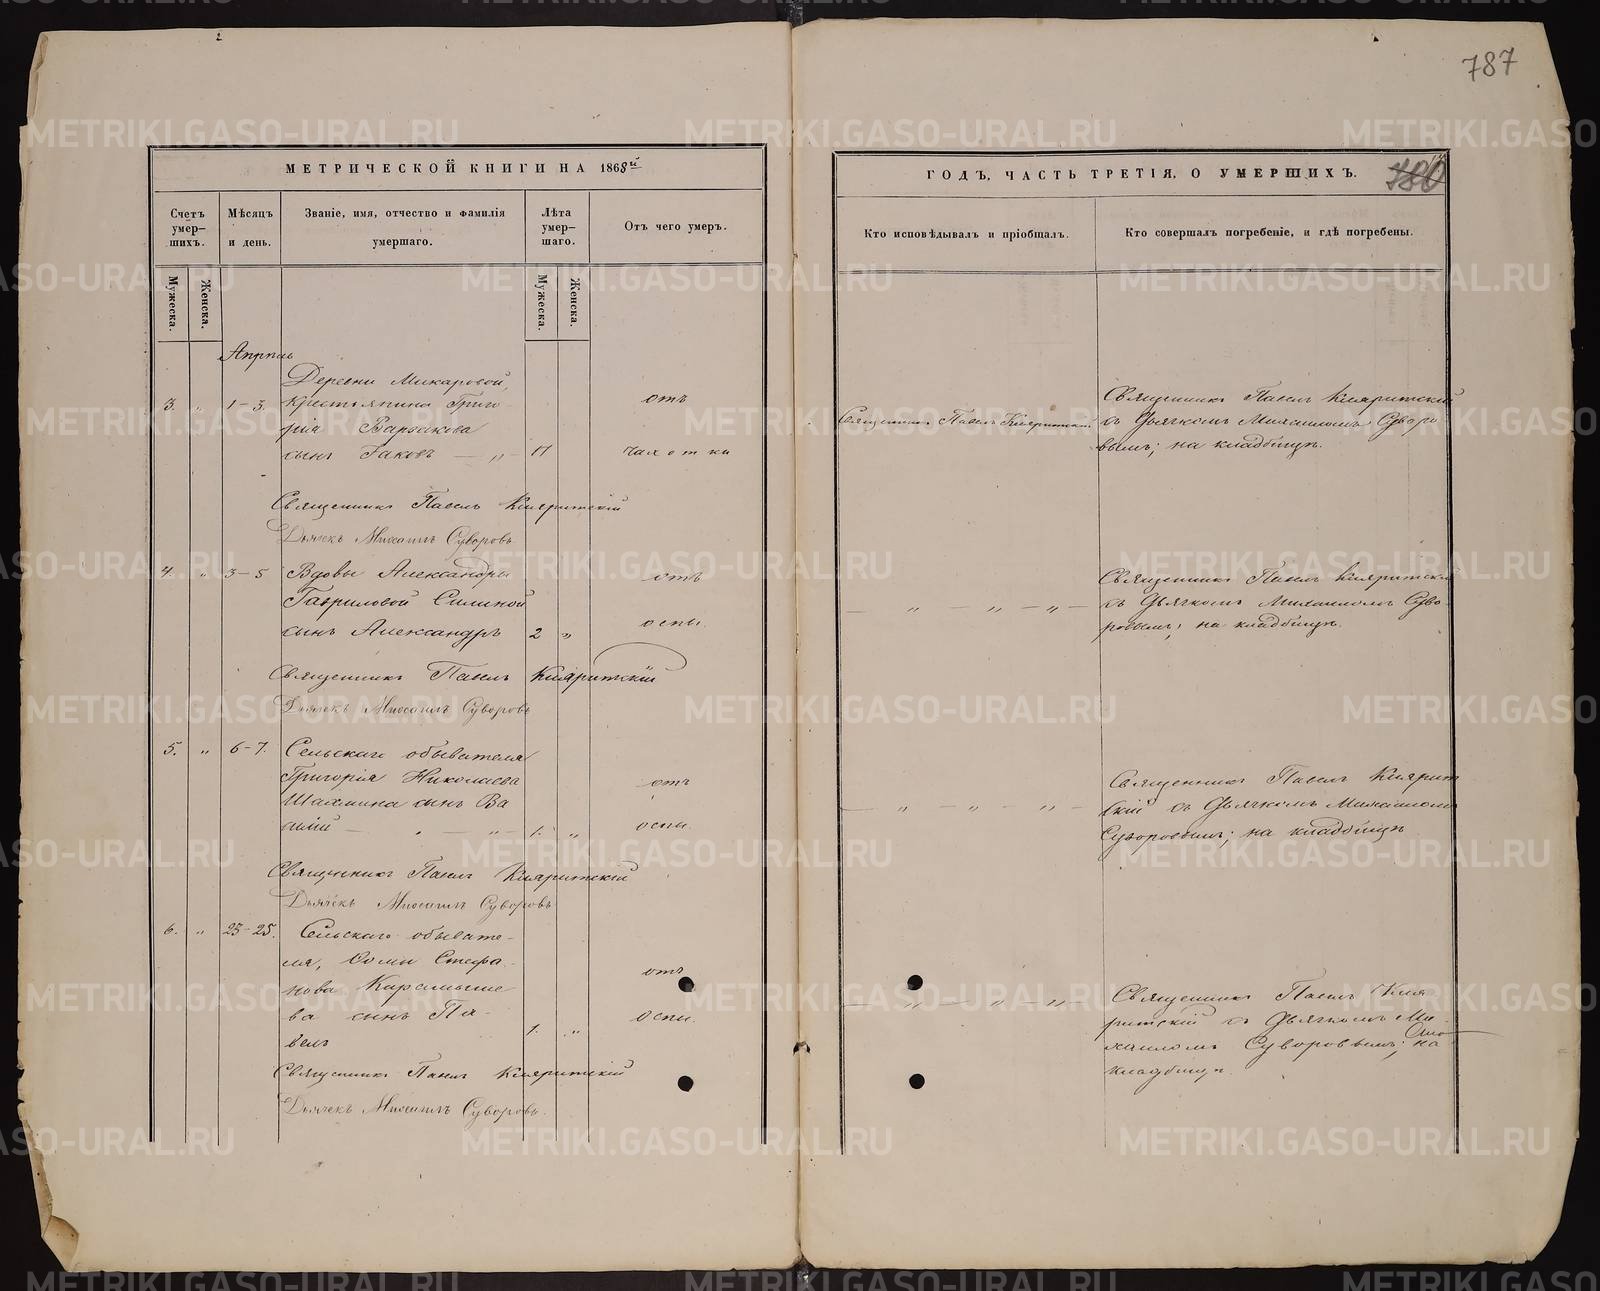 787
МЕТРИЧЕСКОЙ КНИГИ НА 1868й
Счетъ умер-шихъ.
Мѣсяцъ и день.
Званіе, имя, отчество и фамилія умершаго.
Лѣта умер-шаго.
Отъ чего умеръ.
Мужеска.
Женска.
Мужеска.
Женска.
Апрѣль
Деревни Макаровой,
3. „ 1-3. крестьянина Григо-
рія
сынъ Іаковъ — „ — 17
отъ
чахотки
Священникъ Павелъ
Дьячекъ Михаилъ Суворовъ
4. „ 3-5 Вдовы Александры
Гавриловой Силиной
сынъ Александръ 2 „
отъ
оспы.
Священникъ Павелъ
Дьячекъ Михаилъ Суворовъ
5. „ 6-7. Сельскаго обывателя
Григорія Николаева
Шахмина сынъ Ва
силій — „ — „ — 1. „
отъ
оспы.
Священникъ Павелъ
Дьячекъ Михаилъ Суворовъ
6. „ 23-25. Сельскаго обывате-
ля, Ѳомы Стефа-
нова Карамыше
ва сынъ Па-
велъ 1. „
отъ
оспы.
Священникъ Павелъ
Дьячекъ Михаилъ Суворовъ.
ГОДЪ, ЧАСТЬ ТРЕТІЯ, О УМЕРШИХЪ.
780
Кто исповѣдывалъ и пріобщалъ.
Кто совершалъ погребеніе, и гдѣ погребены.
Священникъ Павелъ
Священникъ Павелъ
съ Дьячкомъ Михаиломъ Суворо
вымъ; на кладбищѣ.
— „ — „ — „ —
Священникъ Павелъ
съ Дьячкомъ Михаиломъ Суво-
ровымъ; на кладбищѣ.
— „ — „ — „ —
Священникъ Павелъ
скій съ Дьячкомъ Михаиломъ
Суворовымъ; на кладбищѣ
— „ — „ — „ —
Священникъ Павелъ
ритскій съ Дьячкомъ Ми-
хаиломъ Суворовымъ; на
кладбищѣ.
METRIKI.GASO-URAL.RU